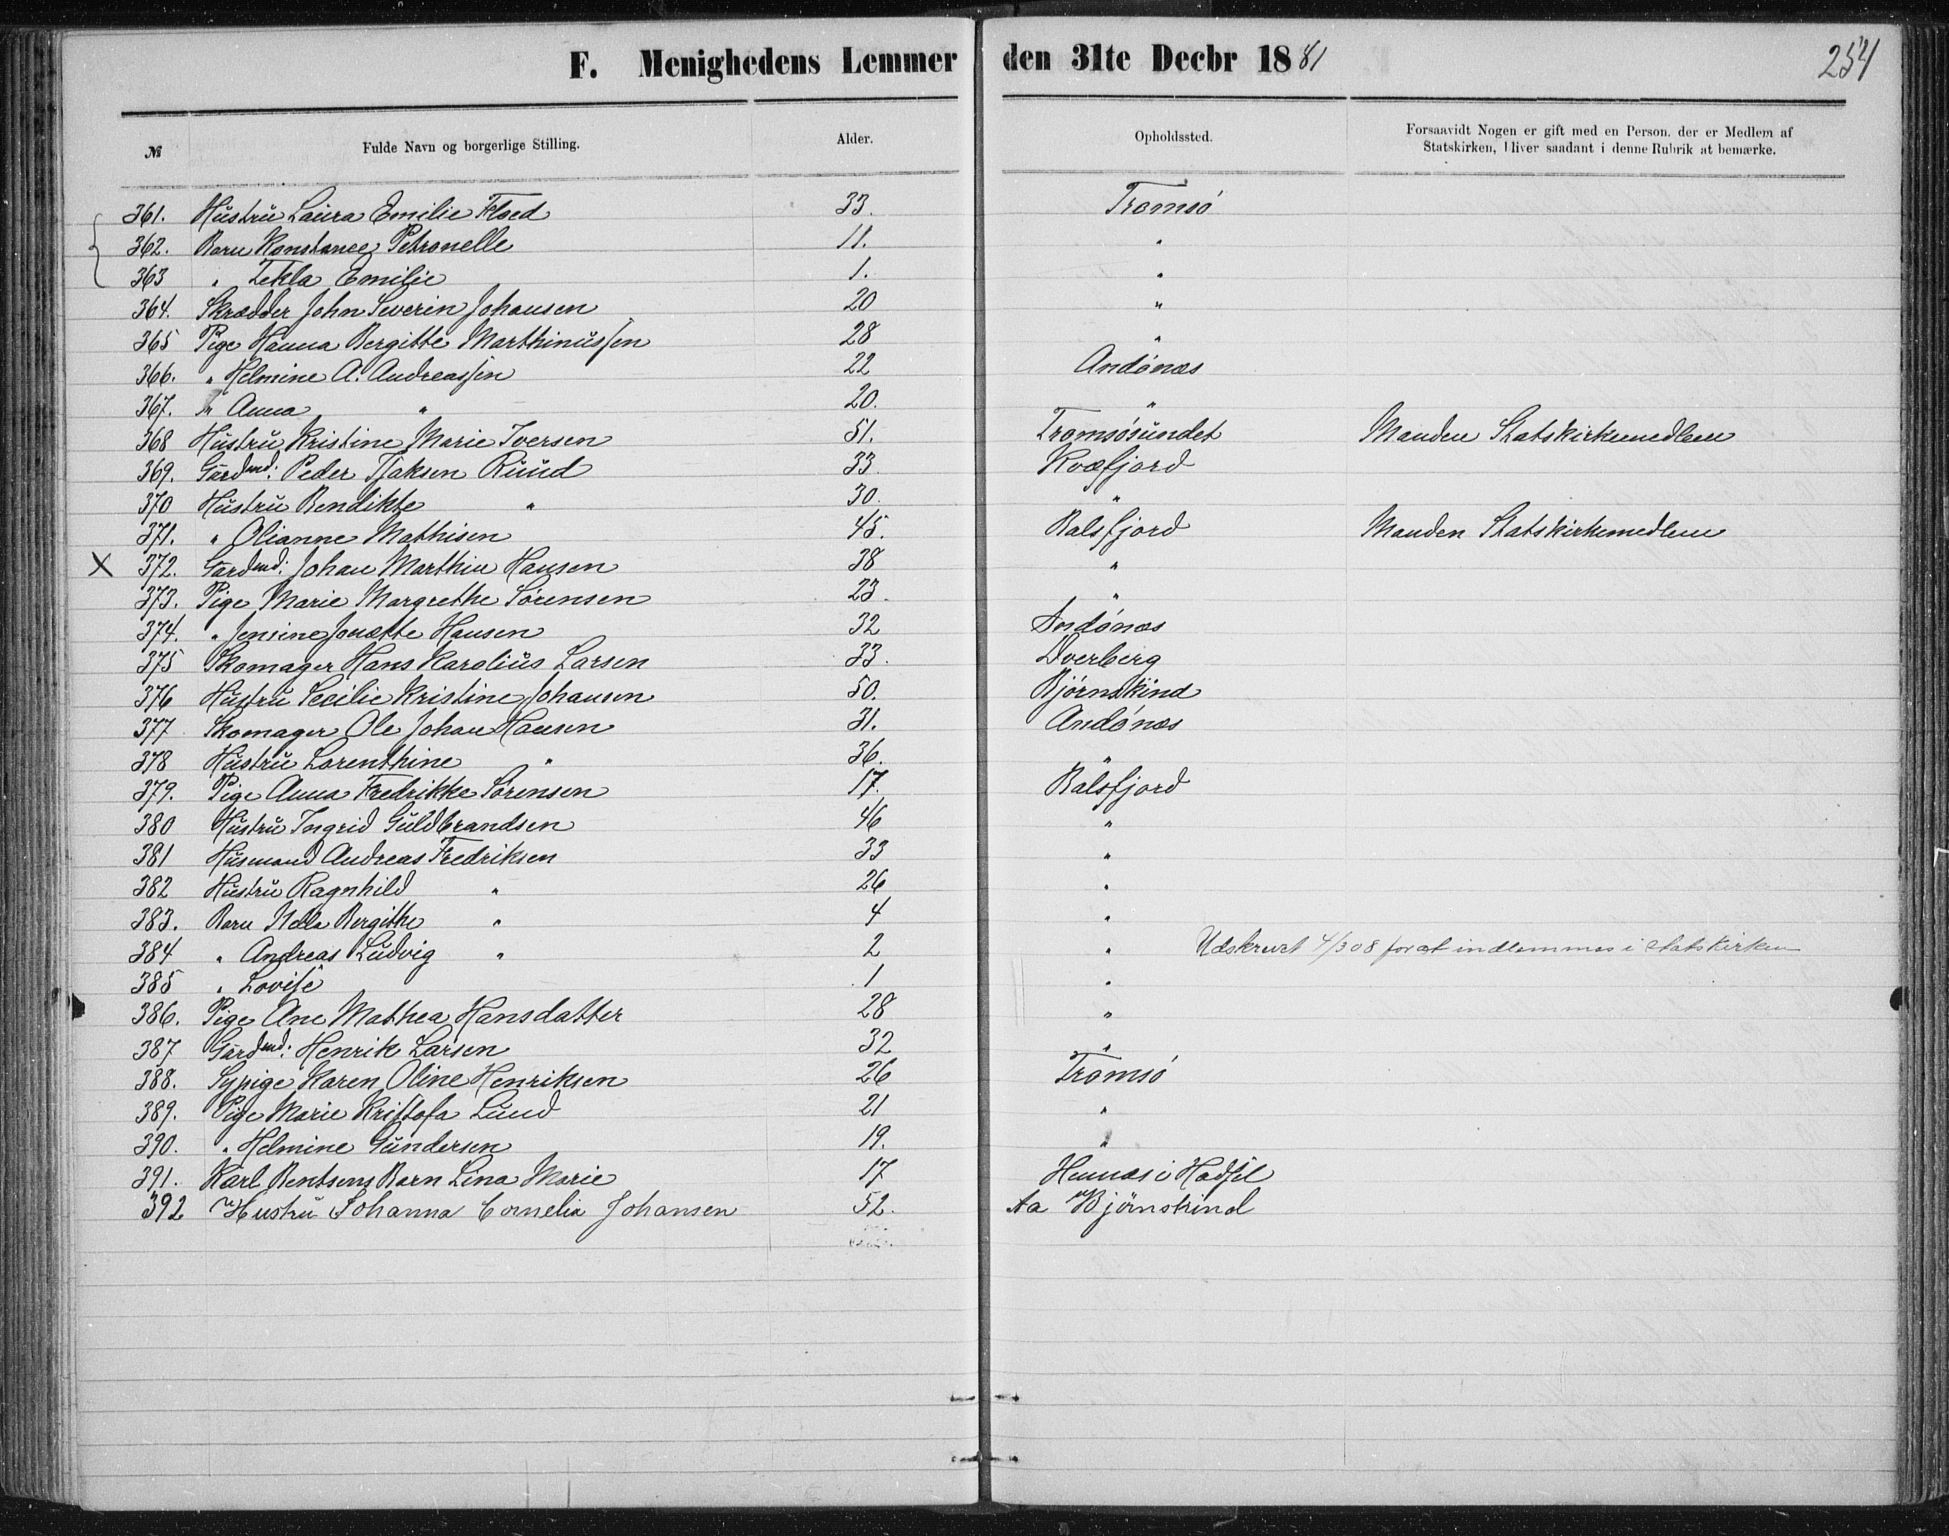 F. Menighedens Lemmer den 31te Decbr 1881 254
№ Fulde Navn og borgerlige Stilling. Alder. Opholdssted. Forsaavidt Nogen er gift med en Person, der er Medlem af Statskirken, bliver saadant i denne Rubrik at bemærke.
361. Hustru Laura Emilie Floed 33. Tromsö
362. Barn Konstance Petronelle 11. "
363 " Tekla Emilie 1. "
364. Skrædder John Severin Johansen 20 "
365 Pige Hanna Bergitte Marthinussen 28 "
366. " Helmine A. Andreassen 22 Andónæs
367. " Anna " 20. "
368 Hustru Kristine Marie Iversen 51. Tromsösundet Manden Statskirkemedlem
369. Gårdmd: Peder Isaksen Ruud 33 Kvæfjord
370 Hustru Bendikte " 30. "
371. " Olianne Mathisen 45. Balsfjord Manden Statskirkemedlem
X 372. Gårdmd: Johan Marthin Hansen 38 "
373. Pige Marie Margrethe Sörensen 23. "
374. " Jensine Jonette Hansen 32 Andónæs
375 Skomager Hans Karolius Larsen 33. Dverberg
376 Hustru Cecilie Kristine Johansen 50. Bjørnskind
377 Skomager Ole Johan Hansen 31. Andónæs
378 Hustru Lorenthine " 36. "
379. Pige Anna Fredrikke Sörensen 17. Balsfjord
380 Hustru Ingrid Guldbrandsen 46 "
381 Husmand Andreas Fredriksen 33 "
382 Hustru Ragnhild " 26 "
383. Barn Bergitha " 4 "
384 " Andreas Ludvig " 2 " Udskrevet 4/3 08 for at indlemmes i statskirken
385 " Lovise 1 "
386. Pige Ane Mathea Hansdatter 28 "
387 Gårdmd: Henrik Larsen 32 "
388. Sypige Karen Oline Henriksen 26 Tromsö
389. Pige Marie Kristofa Lund 21 "
390. " Helmine Gundersen 19. "
391. Karl Bentsens Barn Lina Marie 17 Hennæs i Hadsel
392 Hustru Johanna Cornelia Johansen 52. Aa Bjørnskind